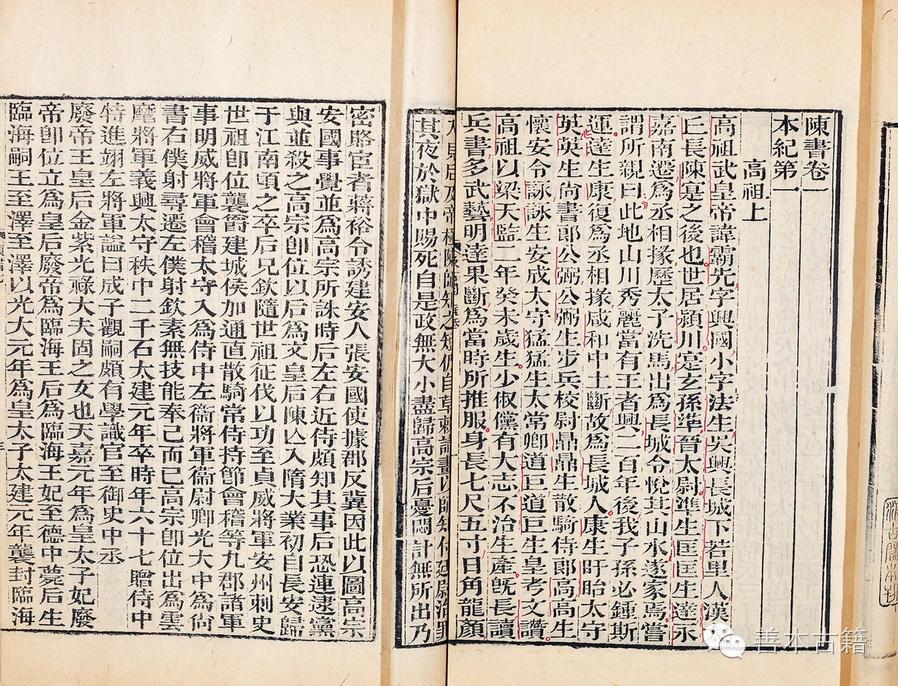 陳書卷一
本紀第一
高祖上
高祖武皇帝諱霸先字興國小字法生吳興長城下若里人漢太
丘長陳寔之後也世居潁川寔玄孫準晉太尉準生匡匡生達永
嘉南遷爲丞相掾歷太子洗馬出爲長城令悅其山水遂家焉嘗
謂所親曰此地山川秀麗當有王者興二百年後我子孫必鍾斯
運達生康復爲丞相掾咸和中土斷故爲長城人康生盱眙太守
英英生尚書郎公弼公弼生步兵校尉鼎鼎生散騎侍郎高高生
懷安令詠詠生安成太守猛猛生太常卿道巨道巨生皇考文讚
高祖以梁天監二年癸未歲生少俶儻有大志不治生產旣長讀
兵書多武藝明達果斷爲當時所推服身長七尺五寸日角龍顏
其夜於獄中賜死自是政無大小盡歸高宗后憂悶計無所出乃
密賂宦者蔣裕令誘建安人張安國使據郡反冀因此以圖高宗
安國事覺並爲高宗所誅時后左右近侍頗知其事后恐連逮黨
與並殺之高宗卽位以后爲文皇后陳亡入隋大業初自長安歸
于江南頃之卒后兄欽隨世祖征伐以功至貞威將軍安州刺史
世祖卽位襲爵建城侯加通直散騎常侍持節會稽等九郡諸軍
事明威將軍會稽太守入爲侍中左衞將軍衞尉卿光大中爲尚
書右僕射尋遷左僕射欽素無技能奉己而已高宗卽位出爲雲
麾將軍義興太守秩中二千石太建元年卒時年六十七贈侍中
特進翊左將軍諡曰成子觀嗣頗有學識官至御史中丞
廢帝王皇后金紫光祿大夫固之女也天嘉元年爲皇太子妃廢
帝卽位立爲皇后廢帝爲臨海王后爲臨海王妃至德中薨后生
臨海嗣王至澤至澤以光大元年爲皇太子太建元年襲封臨海
善本古籍